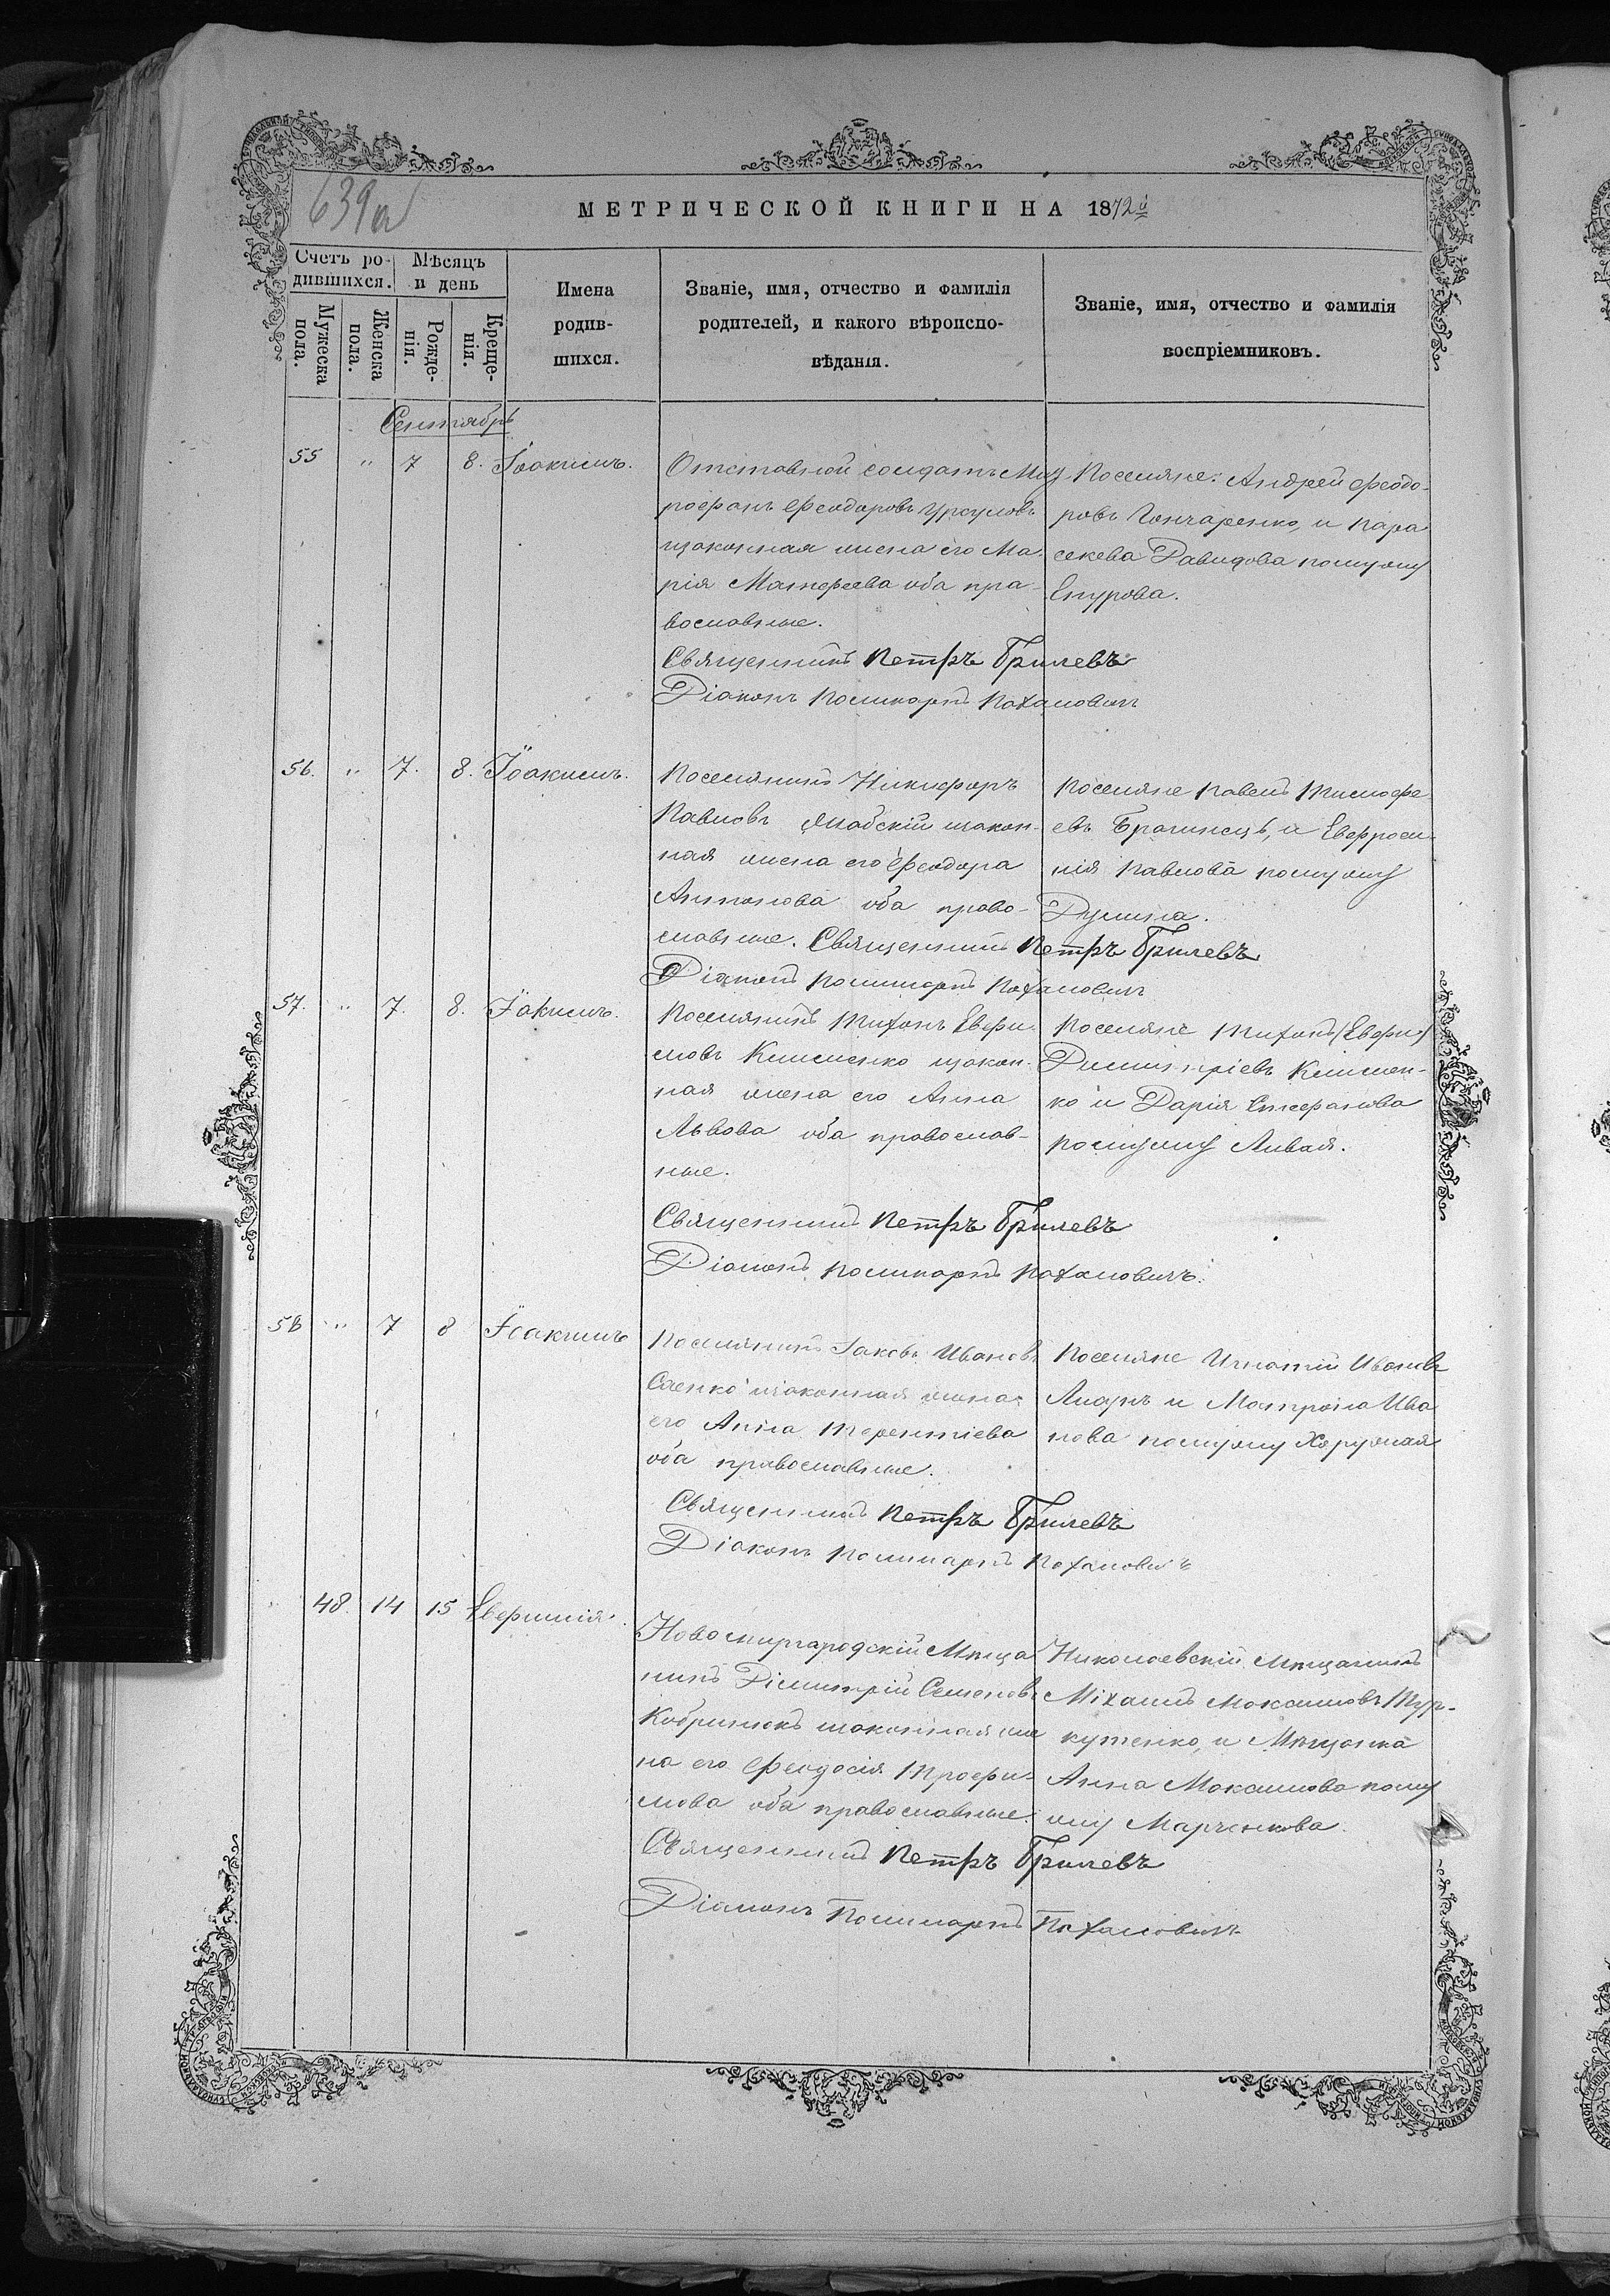 639а
МЕТРИЧЕСКОЙ КНИГИ НА 1872й
Счетъ ро-
дившихся.
Мѣсяцъ
и день
Мужеска
пола.
Женска
пола.
Рожде-
нія.
Креще-
нія.
Имена
родив-
шихся.
Званіе, имя, отчество и фамилія
родителей, и какого вѣроиспо-
вѣданія.
Званіе, имя, отчество и фамилія
воспріемниковъ.
Сентябрь
55 " 7 8. Іоакимъ.
Отставной солдатъ Мит
рофанъ Феодоровъ
изаконная жена его Ма-
рія Матфеева оба пра-
вославные.
Священникъ Петръ Брилевъ
Діаконъ Поликарпъ Похалович
Поселяне: Андрей Феодо-
ровъ Гончаренко, и Пара
скева Давидова помужу
56. " 7. 8. Іоакимъ.
Поселянинъ Никифоръ
Павловъ изакон-
ная жена его Феодора
Антонова оба право-
славные. Священникъ Петръ Брилевъ
Діаконъ Поликарпъ Похалович
Поселяне Павелъ Тимофе
евъ Брагинецъ, и Евфроси-
нія Павлова помужу
57. " 7. 8. Іакимъ.
Поселянинъ Тихонъ Евфи-
мовъ Клименко изакон-
ная жена его Анна
Львова оба православ-
ные.
Священникъ Петръ Брилевъ
Діаконъ Поликарпъ Похаловичъ.
Поселяне Тихонъ (Евфим)
Димитріевъ Климен-
ко и Дарія Стефанова
помужу
58 " 7 8 Іоакимъ
Поселянинъ Іаковъ Ивановъ
Саенко изаконная жена
его Анна Терентіева
оба православные.
Священникъ Петръ Брилевъ
Діаконъ Поликарпъ Похаловичъ
Поселяне Игнатій Ивановъ
и Матрона Ива
нова помужу
48. 14 15 Евфимія.
Новомиргородскій Мѣща
нинъ Димитрій Семеновъ
Кобринюкъ изаконная же
на его Феодосія Трофи-
мова оба православные.
Священникъ Петръ Брилевъ
Діаконъ Поликарпъ Похалович
Николаевскій Мѣщанинъ
Міхаилъ Максимовъ Тур-
кутенко, и Мѣщанка
Анна Максимова пому
жу Марченкова.